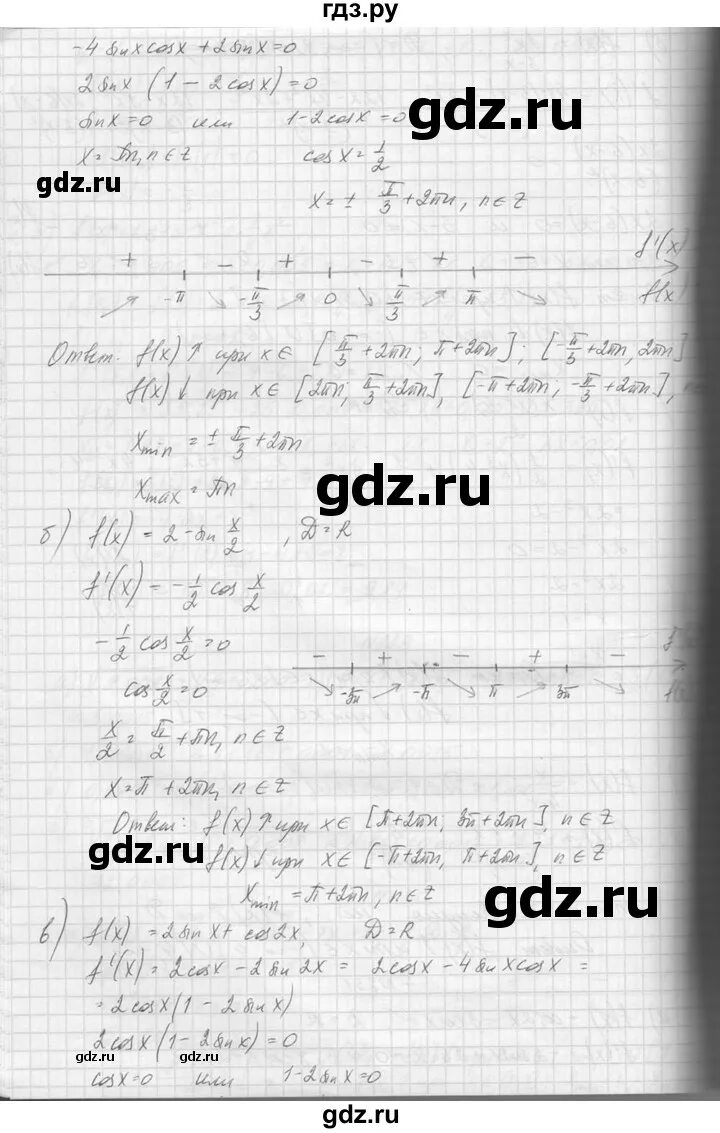 гдз.ру
-4 sinx cosx + 2 sinx = 0
2 sinx (1 - 2 cosx) = 0
gdz.ru
sinx = 0 или 1 - 2 cosx = 0
x = πn, n ∈ Z cosx = 1/2
gdz.ru
x = ± π/3 + 2πn, n ∈ Z
+ - + - + - f'(x)
-π -π/3 0 π/3 π f(x)
Ответ. f(x) ↑ при x ∈ [π/3 + 2πn; π + 2πn]; [-π/3 + 2πn, 2πn]
f(x) ↓ при x ∈ [2πn; π/3 + 2πn], [-π + 2πn, -π/3 + 2πn],
xmin = ± π/3 + 2πn
gdz.ru
xmax = πn
б) f(x) = 2 - sin x/2, D = R
f'(x) = -1/2 cos x/2
-1/2 cos x/2 = 0
- + - + -
-3π -π π 3π
cos x/2 = 0
x/2 = π/2 + πn, n ∈ Z
x = π + 2πn, n ∈ Z
Ответ: f(x) ↑ при x ∈ [π + 2πn, 3π + 2πn], n ∈ Z
gdz.ru
f(x) ↓ при x ∈ [-π + 2πn, π + 2πn], n ∈ Z
xmin = π + 2πn, n ∈ Z
gdz.ru
в) f(x) = 2 sinx + cos2x, D = R
f'(x) = 2cosx - 2 sin 2x = 2cosx - 4 sinx cosx =
= 2cosx (1 - 2 sinx)
2cosx (1 - 2 sinx) = 0
gdz.ru gdz.ru
cosx = 0 или 1 - 2 sinx = 0
gdz.ru